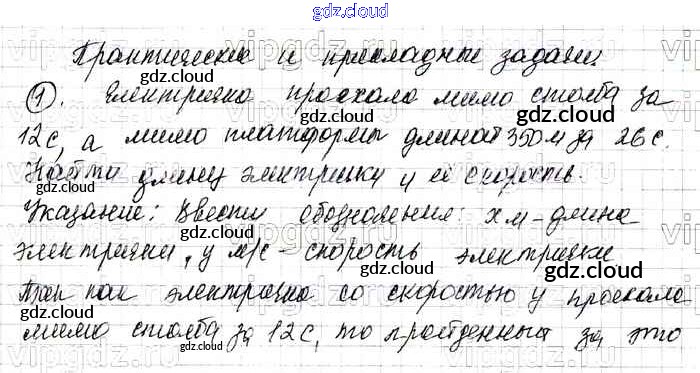 gdz.cloud
Практические и прикладные задачи
①. Электричка проехала мимо столба за
12с, а мимо платформы длиной 350 м за 26 с.
Найти длину электрички и её скорость.
Указание: Ввести обозначения: х м – длина
электрички, у м/с – скорость электрички
Так как электричка со скоростью у проехала
мимо столба за 12с, то пройденный за это